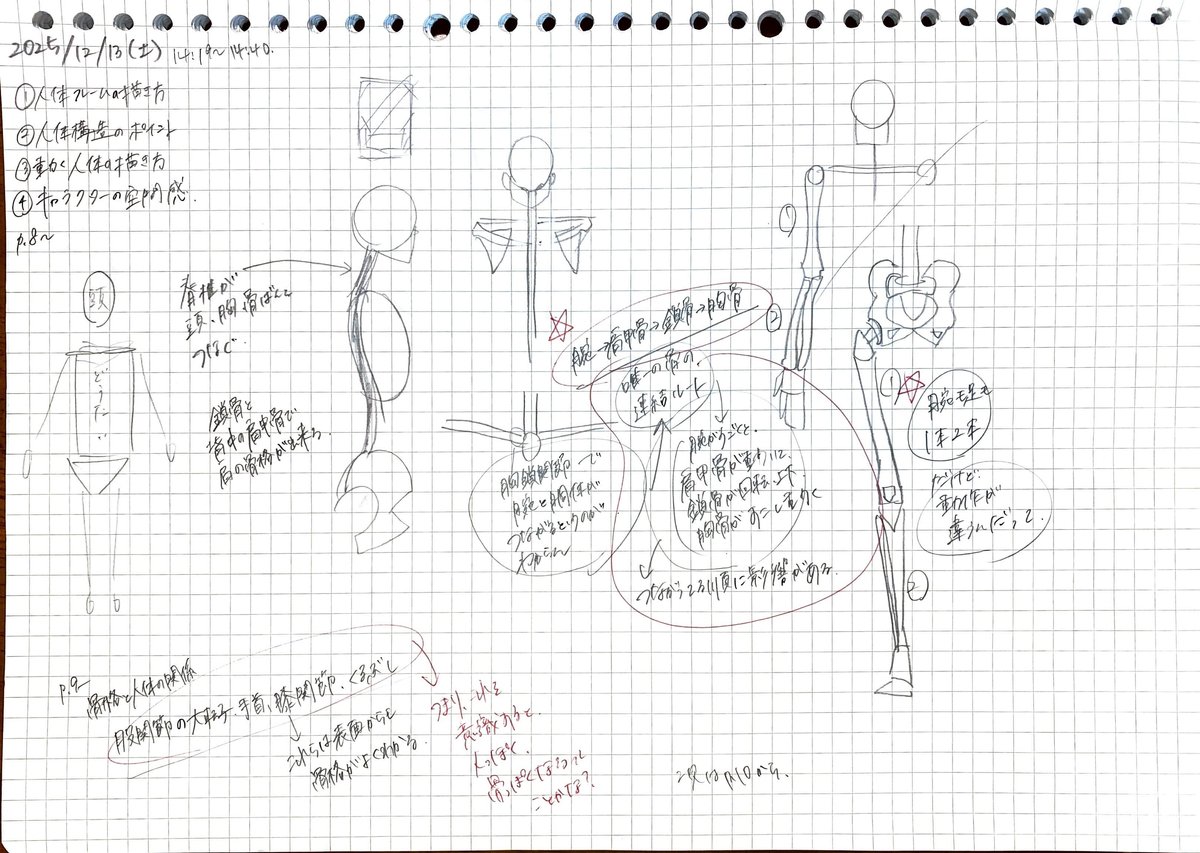 2025/12/13(土) 14:19〜14:40.
①人体フレームの描き方
②人体構造のポイント
③動く人体の描き方
④キャラクターの空間感.
p.8〜
頭
どうたい
脊椎が
頭、胸、骨ばんを
つなぐ
鎖骨と
背中の肩甲骨で
肩の骨格が出来る
腕→肩甲骨→鎖骨→胸骨
唯一の骨の
連結ルート
腕がうごくと、
肩甲骨が動いて、
鎖骨が回転、上下
胸骨がすこし動く
つながってる順に影響がある.
胸鎖関節一つで
腕と胴体が
つながるというのが
わからん
①
②
①
腕も足も
1本2本
だけど
動作が
違うんだって.
②
p.9
骨格と人体の関係
股関節の大転子、手首、膝関節、くるぶし
これらは表面からも
骨格がよくわかる.
つまり、これを
意識すると、
人っぽく
骨っぽくなるって
ことかな?
次はp.10から.